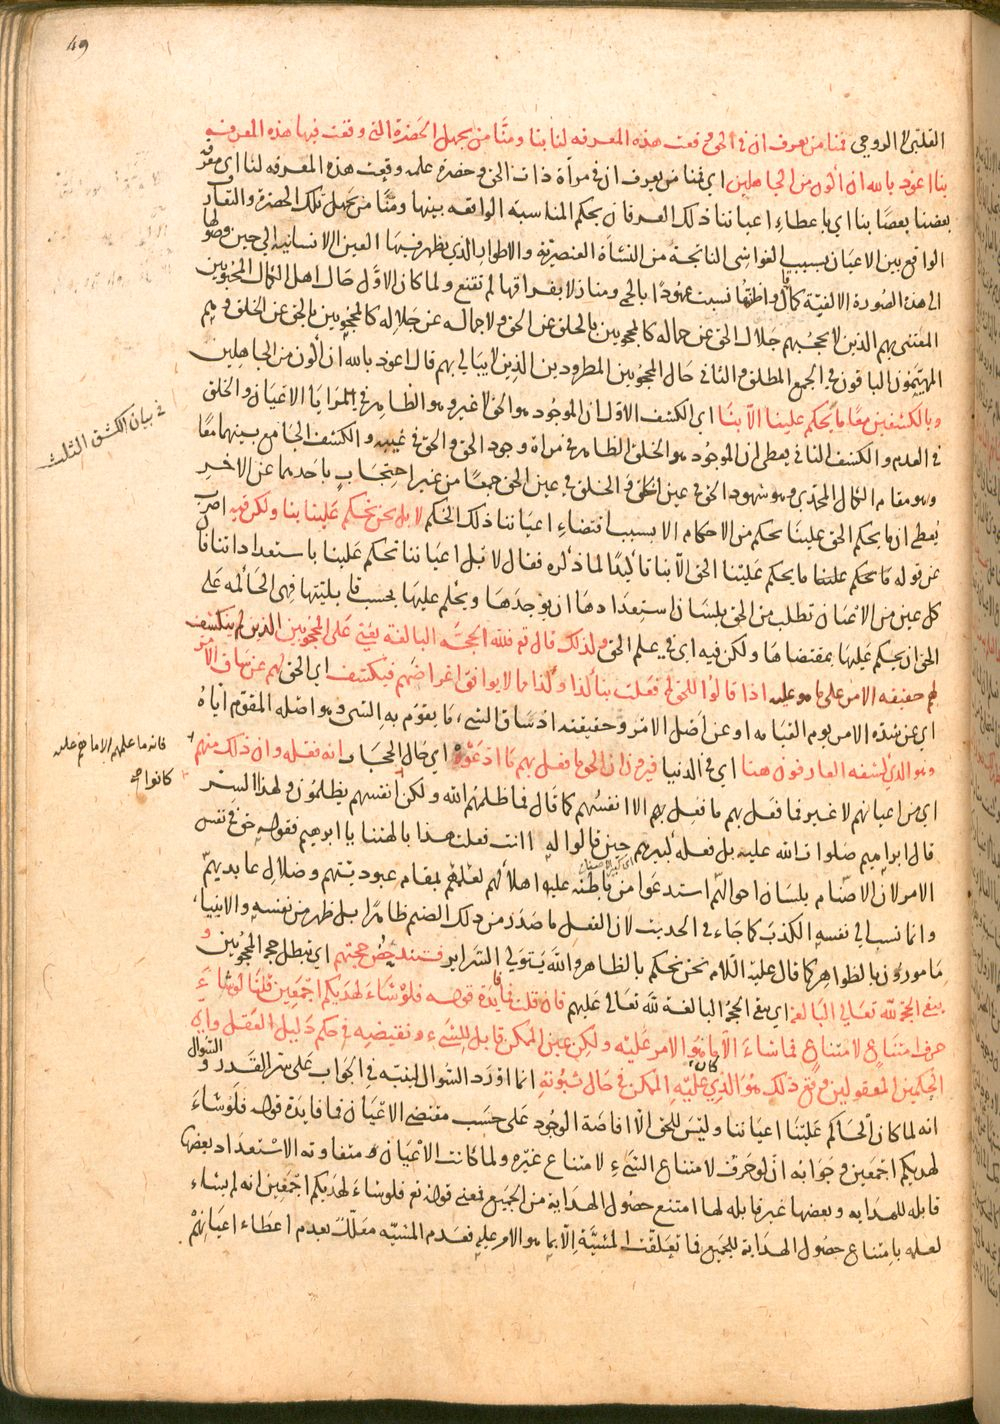 49
القلبى لا الروحى فمنا من يعرف ان فى الحق وقعت هذه المعرفه لنا بنا ومنا من يجهل الحضرة التى وقعت فيها هذه المعرفه
بنا اعوذ بالله ان اكون من الجاهلين اى فمنا من يعرف ان فى مرآة ذات الحق وحضرة علمه وقعت هذه المعرفه لنا اى معرفه
بعضنا بعضا بنا اى باعطاء اعياننا ذلك العرفان بحكم المناسبه الواقعه بينها ومنا من يجهل تلك الحضرة والتعارف
الواقع بين الاعيان بسبب الغواشى الناتجة من النشأة العنصرية والاطوار الذى يظهر فيها العين الانسانيه الى حين وصولها
الى هذه الصورة الالفية كما قال واظنها نسيت عهودًا بالحمى ومنازلا بفراقها لم تقنع ولما كان الاول حال اهل الكمال المحبوبين
المعتنى بهم الذين لا يحجبهم جلال الحق عن جماله كالمحجوبين بالخلق عن الحق ولا جماله عن جلاله كالمحجوبين بالحق عن الخلق وهم
المهيمون الباقون فى الجمع المطلق والثانى حال المحجوبين المطرودين الذين لا يبالى بهم قال اعوذ بالله ان اكون من الجاهلين
وبالكشفين معا ما يحكم علينا الا بنا اى الكشف الاول ان الموجود هو الحق لا غير وهو الظاهر فى المرايا الاعيان والخلق
فى العدم والكشف الثانى يعطى ان الموجود هو الخلق الظاهر فى مرآة وجود الحق والحق فى غيبه والكشف الجامع بينهما معًا
وهو مقام الكمال المحمدى وهو شهود الحق فى عين الخلق والخلق فى عين الحق جمعًا من غير احتجاب باحدهما عن الاخر
يعطى ان ما يحكم الحق علينا بحكم من الاحكام الا بسبب اقتضاء اعياننا ذلك الحكم لا بل نحن نحكم علينا بنا ولكن فيه اضرب
عن قوله ما يحكم علينا ما يحكم علينا الحق الا بنا تاكيدًا لما ذكره فقال لا بل اعياننا تحكم علينا باستعداداتنا فان
كل عين من الاعيان تطلب من الحق بلسان استعدادها ان يوجدها ويحكم عليها بحسب قابليتها فهى الحاكمه على
الحق ان يحكم عليها بمقتضاها ولكن فيه اى فى علم الحق ولذلك قال تع فلله الحجة البالغة يعنى على المحجوبين الذين لم ينكشف
لهم حقيقه الامر على ما هو عليه اذا قالوا للحق لم فعلت بنا كذا وكذا مما لا يوافق اغراضهم فيكشف اى الحق لهم عن ساق الامر
اى عن شدة الامر يوم القيامه او عن اصل الامر وحقيقته اذ ساق الشىء ما يقوم به الشىء وهو اصله المقوم اياه
وهو الذى كشفه العارفون هنا اى فى الدنيا فيرون ان الحق ما فعل بهم ما ادعوه اى حال الحجاب انه فعله وان ذلك منهم
اى من اعيانهم لا غير فما فعل بهم ما فعل بهم الا انفسهم كما قال فما ظلمهم الله ولكن انفسهم يظلمون ولهذا السر
قال ابراهيم صلوات الله عليه بل فعله كبيرهم حين قالوا له اانت فعلت هذا بالهتنا يا ابراهيم فقوله حق فى نفس
الامر لان الاصنام بلسان احوالهم استدعوا من باطنه عليه اهلاكهم لعلمهم بمقام عبوديتهم وضلال عابديهم
وانما نسب الى نفسه الكذب كما جاء فى الحديث لان الفعل ما صدر من ذلك الصنم ظاهرًا بل ظهر من نفسه والانبياء
مامورون بالظواهر كما قال عليه السلام نحن نحكم بالظاهر والله يتولى السراير فتندحض حجتهم اى تبطل حجج المحجوبين و
يبقى الحجة لله تعالى البالغة اى يبقى الحجة البالغة لله تعالى عليهم فان قلت فما فايدة قوله فلو شاء لهديكم اجمعين قلنا لو شاء
حرف امتناع لامتناع فما شاء الا ما هو الامر عليه ولكن عين الممكن قابل للشىء ونقيضه فى حكم دليل العقل واى
الحكمين المعقولين وقع ذلك هو الذى كان عليه الممكن فى حال ثبوته انما اورد السوال لينبه فى الجواب على سر القدر والسوال
انه لما كان الحاكم علينا اعياننا وليس للحق الا افاضة الوجود على حسب مقتضى الاعيان فما فايدة قوله فلو شاء
لهديكم اجمعين وجوابه ان لو حرف لامتناع الشىء لامتناع غيره ولما كانت الاعيان متفاوته الاستعداد بعضها
قابله للهدايه وبعضها غير قابله لها امتنع حصول الهداية من الجميع فمعنى قوله تع فلو شاء لهديكم اجمعين انه لم يشاء
لعلمه بامتناع حصول الهداية للجميع فما تعلقت المشية الا بما هو الامر عليه فعدم المشيه معلل بعدم اعطاء اعيانهم
فى بيان الكشق الثلث
فانه ما علمهم الا ما هم عليه
كانوا